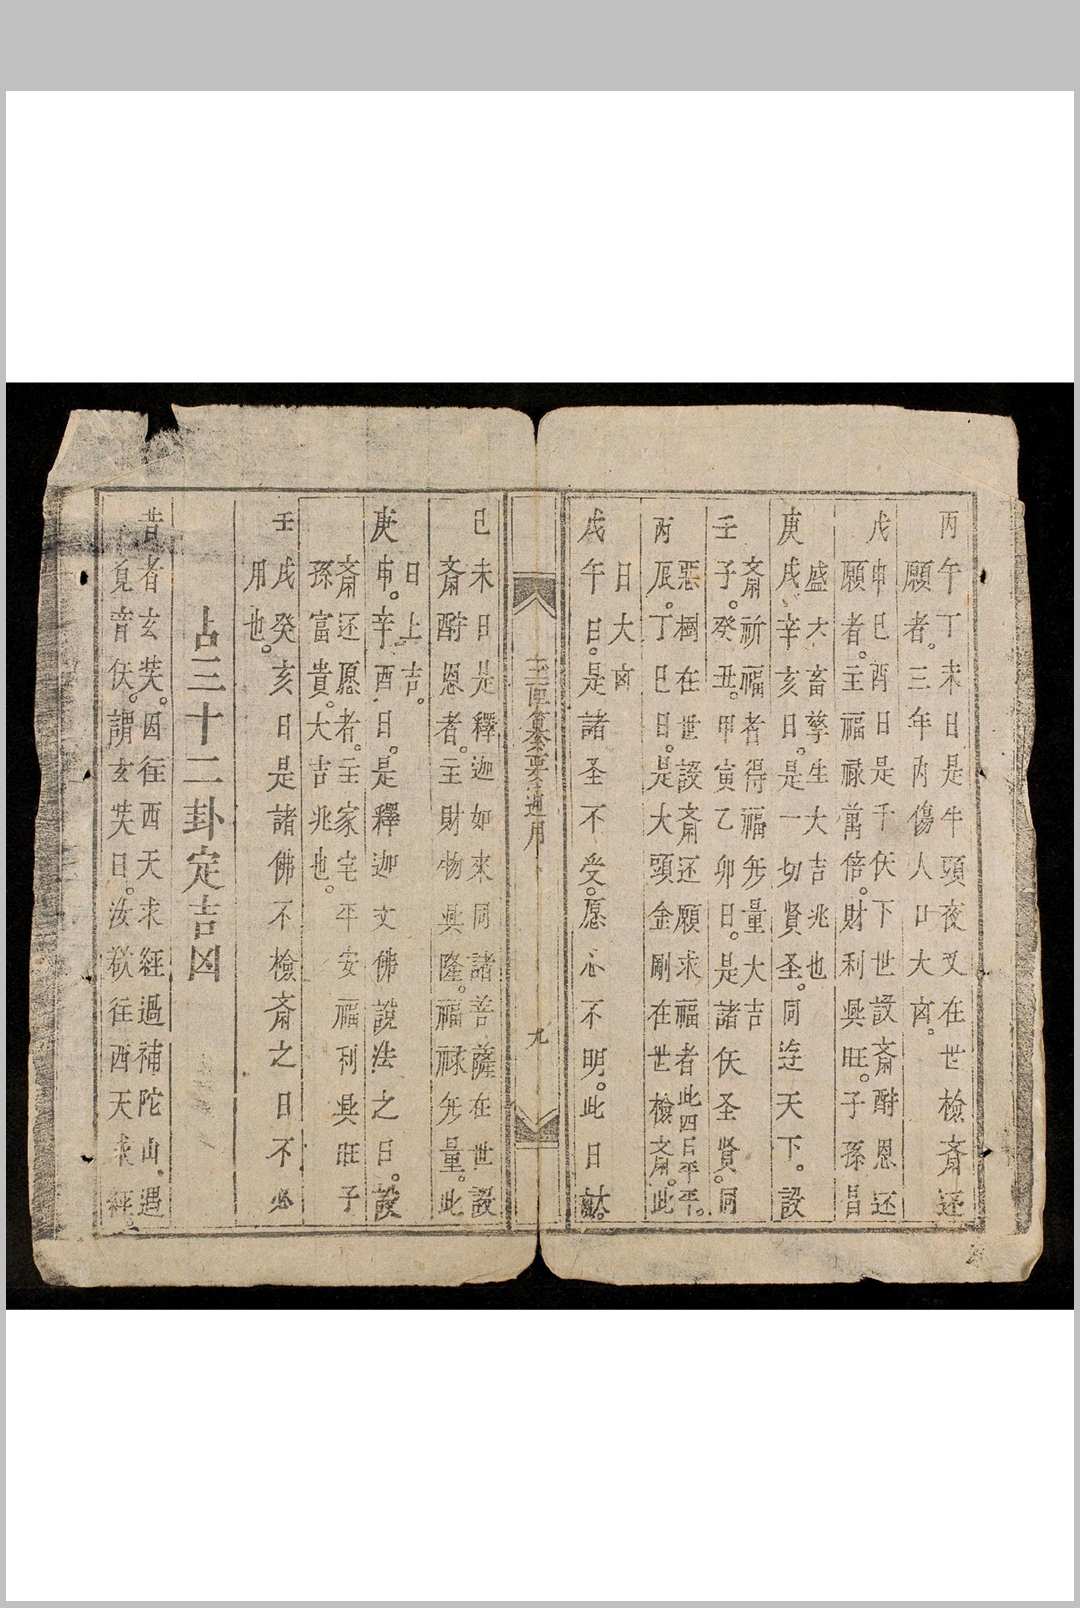 丙午丁未日是牛頭夜叉在世檢斎还
願者。三年內傷人口大凶。
戊申己酉日是千佛下世設斎酧恩还
願者。主福祿萬倍。財利興旺。子孫昌
盛大畜孳生大吉兆也
庚戌辛亥日。是一切賢圣。同遊天下。設
斎祈福者得福旡量大吉
壬子。癸丑。甲寅乙卯日。是諸佛圣賢。同
惡樹在世設斎还願求福者此四日平平。
丙辰。丁巳日。是大頭金剛在世檢斎。此
日大凶
戊午日。是諸圣不受。愿心不明。此日
三𠫵畣夈要通用
九
己未日是釋迦如來同諸善薩在世設
斎酧恩者。主財物興隆。福禄旡量。此
日上吉。
庚申。辛酉日。是釋迦文佛說法之日。設
斎还愿者。主家宅平安福利興旺子
孫富貴。大吉兆也。
壬戌癸亥日是諸佛不檢斎之日不必
用也。
占三十二卦定吉凶
昔者玄奘。因往西天求經過補陀山。遇
覓音佛。謂玄奘曰。汝欲往西天求經